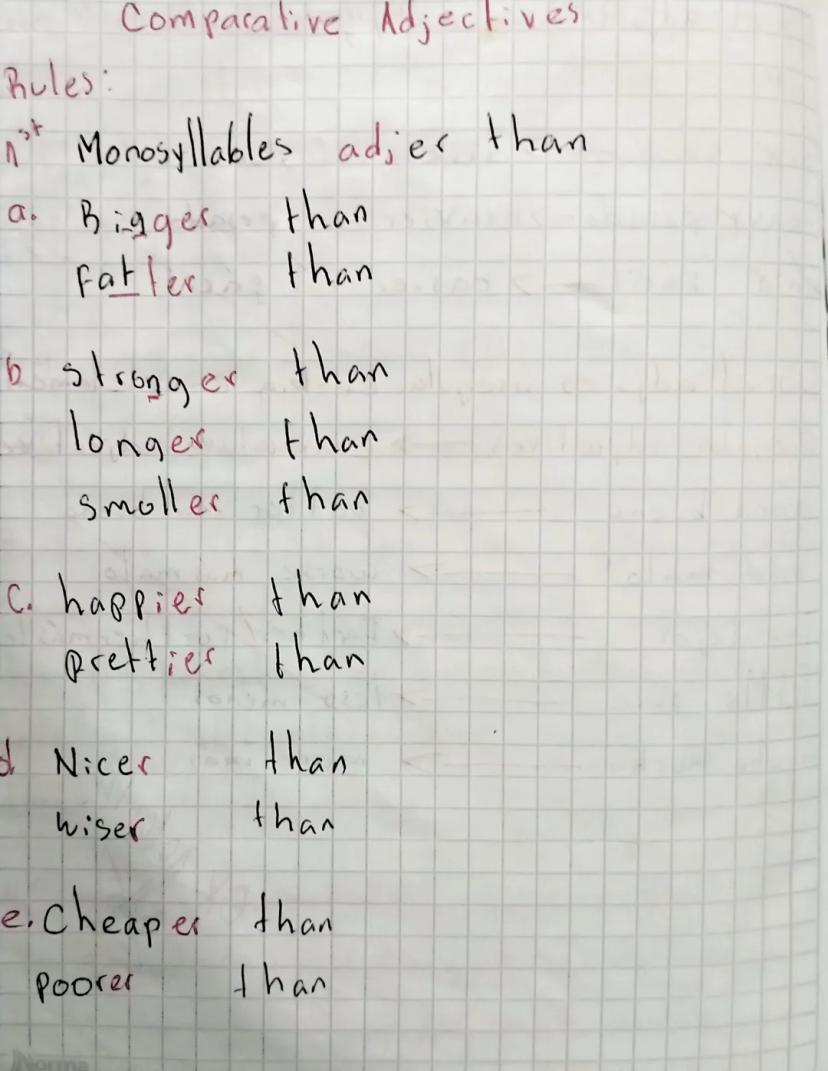 Comparative Adjectives
Rules:
1st Monosyllables adj er than
a. Bigger than
Fatter than
b stronger than
longer than
smaller than
c. happier than
prettier than
d Nicer than
wiser than
e. Cheaper than
poorer than
Norma